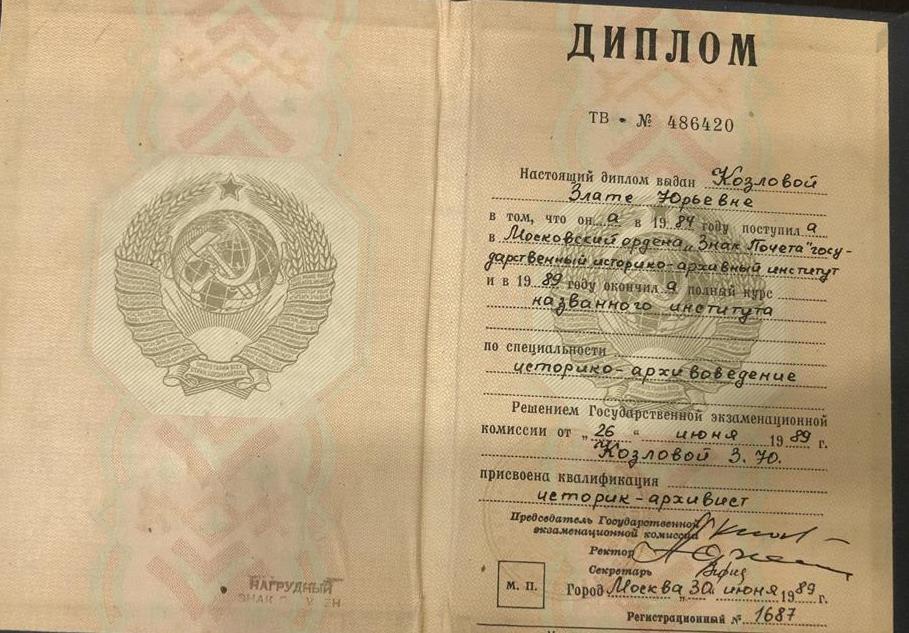 ДИПЛОМ
ТВ № 486420
Настоящий диплом выдан Козловой
Злате Юрьевне
в том, что он а в 1984 году поступил а
в Московский ордена „Знак Почета" госу-
дарственный историко-архивный институт
и в 1989 году окончил а полный курс
названного института
по специальности
историко-архивоведение
Решением Государственной экзаменационной
комиссии от „26" июня 1989 г.
Козловой З.Ю.
присвоена квалификация
историк-архивист
Председатель Государственной
экзаменационной комиссии
Ректор
Секретарь
М. П.
Город Москва „30" июня 1989 г.
Регистрационный № 1687
НАГРУДНЫЙ
ЗНАК